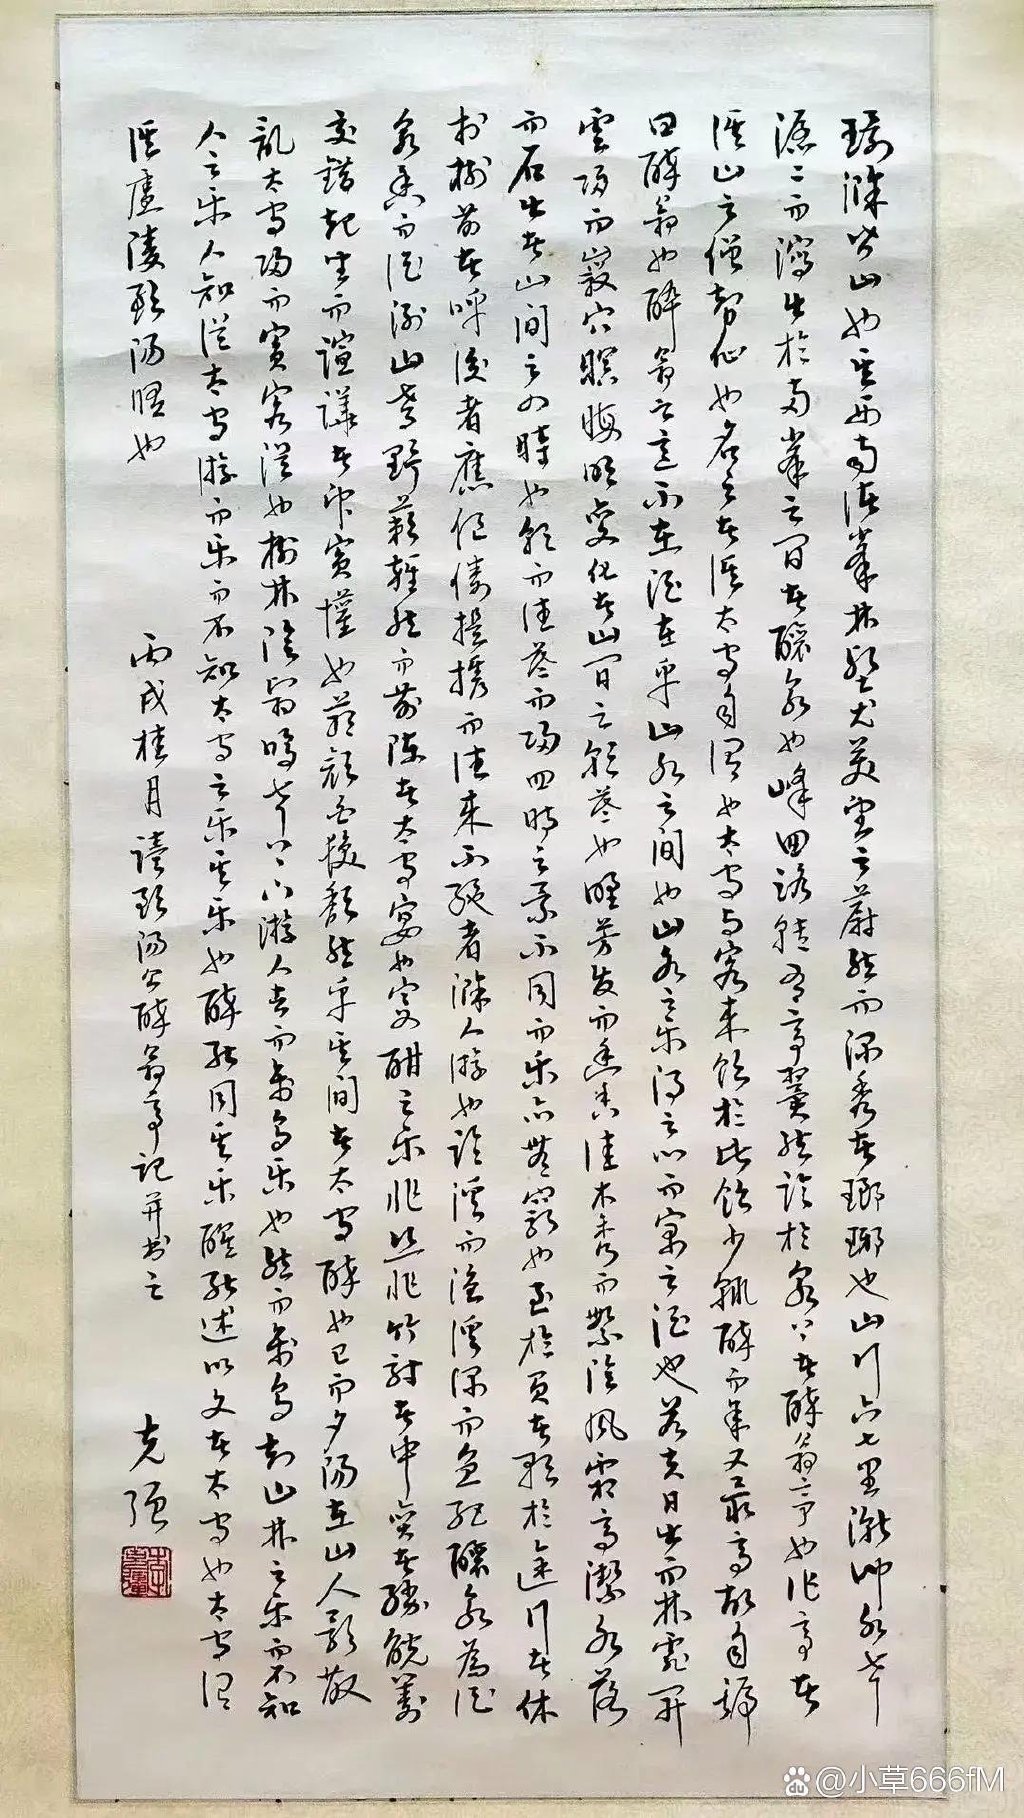 環滁皆山也其西南諸峯林壑尤美望之蔚然而深秀者瑯琊也山行六七里漸聞水聲
潺々而瀉出於兩峯之間者釀泉也峰回路轉有亭翼然臨於泉上者醉翁亭也作亭者
誰山之僧智仙也名之者誰太守自謂也太守與客來飲於此飲少輒醉而年又最高故自號
曰醉翁也醉翁之意不在酒在乎山水之間也山水之樂得之心而寓之酒也若夫日出而林霏開
雲歸而巖穴暝晦明變化者山間之朝暮也野芳發而幽香佳木秀而繁陰風霜高潔水落
而石出者山間之四時也朝而往暮而歸四時之景不同而樂亦無窮也至於負者歌於途行者休
於樹前者呼後者應傴僂提攜而往來不絕者滁人游也臨溪而漁溪深而魚肥釀泉為酒
泉香而酒洌山肴野蔌雜然而前陳者太守宴也宴酣之樂非絲非竹射者中弈者勝觥籌
交錯起坐而諠譁者眾賓懽也蒼顏白髮頹然乎其間者太守醉也已而夕陽在山人影散
亂太守歸而賓客從也樹林陰翳鳴聲上下游人去而禽鳥樂也然而禽鳥知山林之樂而不知
人之樂人知從太守游而樂而不知太守之樂其樂也醉能同其樂醒能述以文者太守也太守謂
誰廬陵歐陽脩也 丙戌桂月讀歐陽公醉翁亭記并書之 克强
@小草666fM